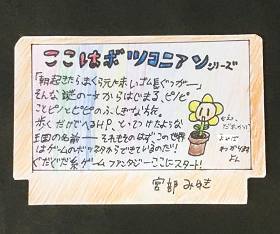 ここはボツコニアンシリーズ
「朝起きたらまくら元に ゴム長ぐつが——」
そんな謎の一文からはじまる、
ピノとピピのふしぎな旅。
歩くだけでへるHP、とってつけたような
王国の名前―― それもそのはず この世界
はゲームのボツネタからできているのだ!!
ぐだぐだ系ゲームファンタジーここにスタート!
宮部みゆき
だれかは
よめば
わかります
よん